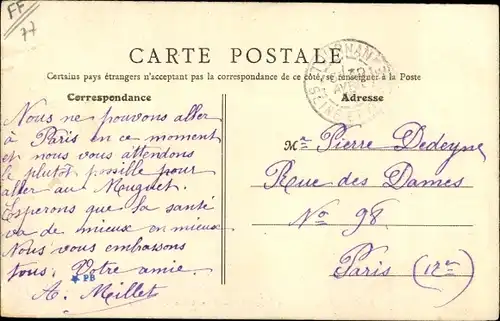 FF
77
CARTE POSTALE
Certains pays étrangers n'acceptant pas la correspondance de ce côté, se renseigner à la Poste
Correspondance
Adresse
Nous ne pouvons aller
à Paris en ce moment
et nous vous attendons
le plutôt possible pour
aller au Muguet.
Esperons que la santé
va de mieux en mieux
Nous vous embrassons
tous. Votre amie.
A. Millet
PB
Mr Pierre Dedeyne
Rue des Dames
No 98
Paris (17e)